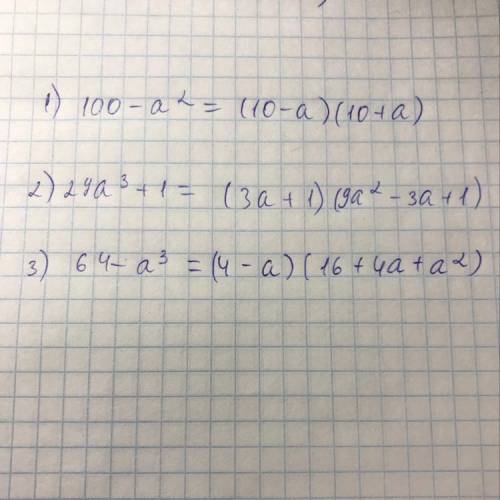 1) 100 - a² = (10 - a)(10 + a)
2) 27a³ + 1 = (3a + 1)(9a² - 3a + 1)
3) 64 - a³ = (4 - a)(16 + 4a + a²)